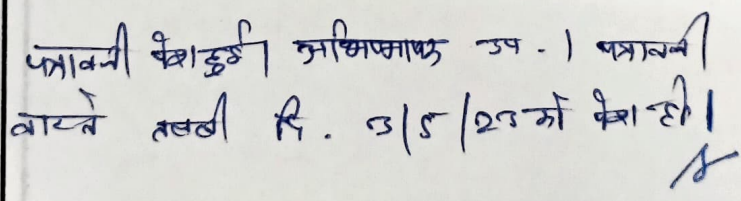 पत्रावली पेश हुई। अभिभाषक उप.। पत्रावली
वास्ते तलबी दि. 3/5/23 को पेश हो।